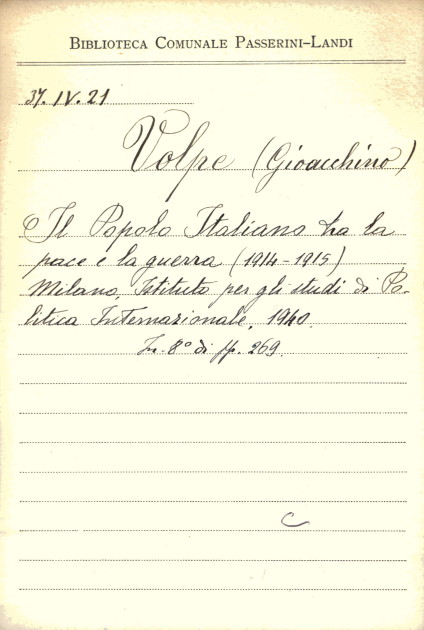 BIBLIOTECA COMUNALE PASSERINI-LANDI
37. IV. 21
Volpe (Gioacchino)
Il Popolo Italiano tra la
pace e la guerra (1914-1915)
Milano, Istituto per gli studi di Po-
litica Internazionale, 1940.
In-8° di pp. 269.
C